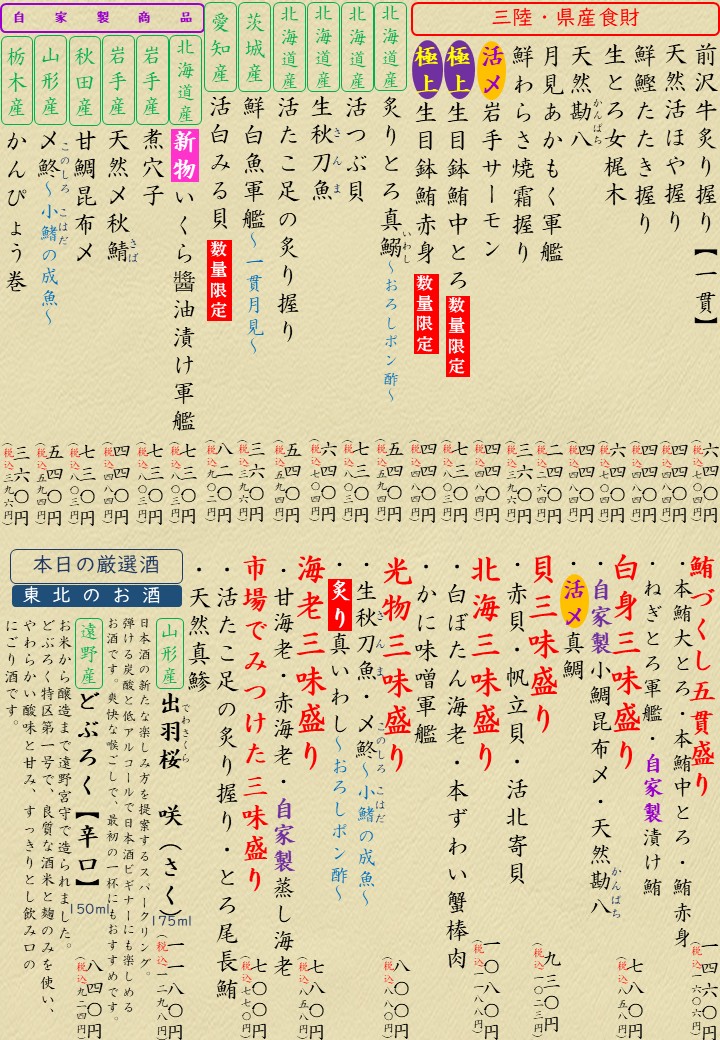 三陸・県産食財
前沢牛炙り握り【一貫】 六四〇円 (税込七〇四円)
天然活ほや握り 四四〇円 (税込四八四円)
鮮鰹たたき握り 四四〇円 (税込四八四円)
生とろ女梶木 六四〇円 (税込七〇四円)
天然勘八 かんぱち 四四〇円 (税込四八四円)
月見あかもく軍艦 二四〇円 (税込二六四円)
鮮わらさ焼霜握り 三六〇円 (税込三九六円)
活〆岩手サーモン 四四〇円 (税込四八四円)
極上生目鉢鮪中とろ 数量限定 七三〇円 (税込八〇三円)
極上生目鉢鮪赤身 数量限定 四四〇円 (税込四八四円)
北海道産 炙りとろ真鰯 いわし ～おろしポン酢～ 五四〇円 (税込五九四円)
北海道産 活つぶ貝 七三〇円 (税込八〇三円)
北海道産 生秋刀魚 さんま 六四〇円 (税込七〇四円)
北海道産 活たこ足の炙り握り 五四〇円 (税込五九四円)
茨城産 鮮白魚軍艦～一貫月見～ 三六〇円 (税込三九六円)
愛知産 活白みる貝 数量限定 八二〇円 (税込九〇二円)
自家製商品
北海道産 新物いくら醬油漬け軍艦 七三〇円 (税込八〇三円)
岩手産 煮穴子 七三〇円 (税込八〇三円)
岩手産 天然〆秋鯖 さば 四四〇円 (税込四八四円)
秋田産 甘鯛昆布〆 七三〇円 (税込八〇三円)
山形産 〆鮗 このしろ ～小鰭の成魚～ こはだ 五四〇円 (税込五九四円)
栃木産 かんぴょう巻 三六〇円 (税込三九六円)
鮪づくし五貫盛り 一四六〇円 (税込一六〇六円)
・本鮪大とろ・本鮪中とろ・鮪赤身
・ねぎとろ軍艦・自家製漬け鮪
白身三味盛り 七八〇円 (税込八五八円)
・自家製小鯛昆布〆・天然勘八 かんぱち
・活〆真鯛
貝三味盛り 九三〇円 (税込一〇二三円)
・赤貝・帆立貝・活北寄貝
北海三味盛り 一〇八〇円 (税込一一八八円)
・白ぼたん海老・本ずわい蟹棒肉
・かに味噌軍艦
光物三味盛り 八〇〇円 (税込八八〇円)
・生秋刀魚・〆鮗～小鰭の成魚～ さんま このしろ こはだ
・炙り真いわし～おろしポン酢～
海老三味盛り 七八〇円 (税込八五八円)
・甘海老・赤海老・自家製蒸し海老
市場でみつけた三味盛り 七〇〇円 (税込七七〇円)
・活たこ足の炙り握り・とろ尾長鮪
・天然真鯵
本日の厳選酒
東北のお酒
山形産 出羽桜 でわさくら 咲(さく) 175ml 一一八〇円 (税込一二九八円)
日本酒の新たな楽しみ方を提案するスパークリング。
弾ける炭酸と低アルコールで日本酒ビギナーにも楽しめる
お酒です。爽快な喉ごしで、最初の一杯にもおすすめです。
遠野産 どぶろく【辛口】 150ml 八四〇円 (税込九二四円)
お米から醸造まで遠野宮守で造られました。
どぶろく特区第一号で、良質な酒米と麹のみを使い、
やわらかい酸味と甘み、すっきりとし飲み口の
にごり酒です。